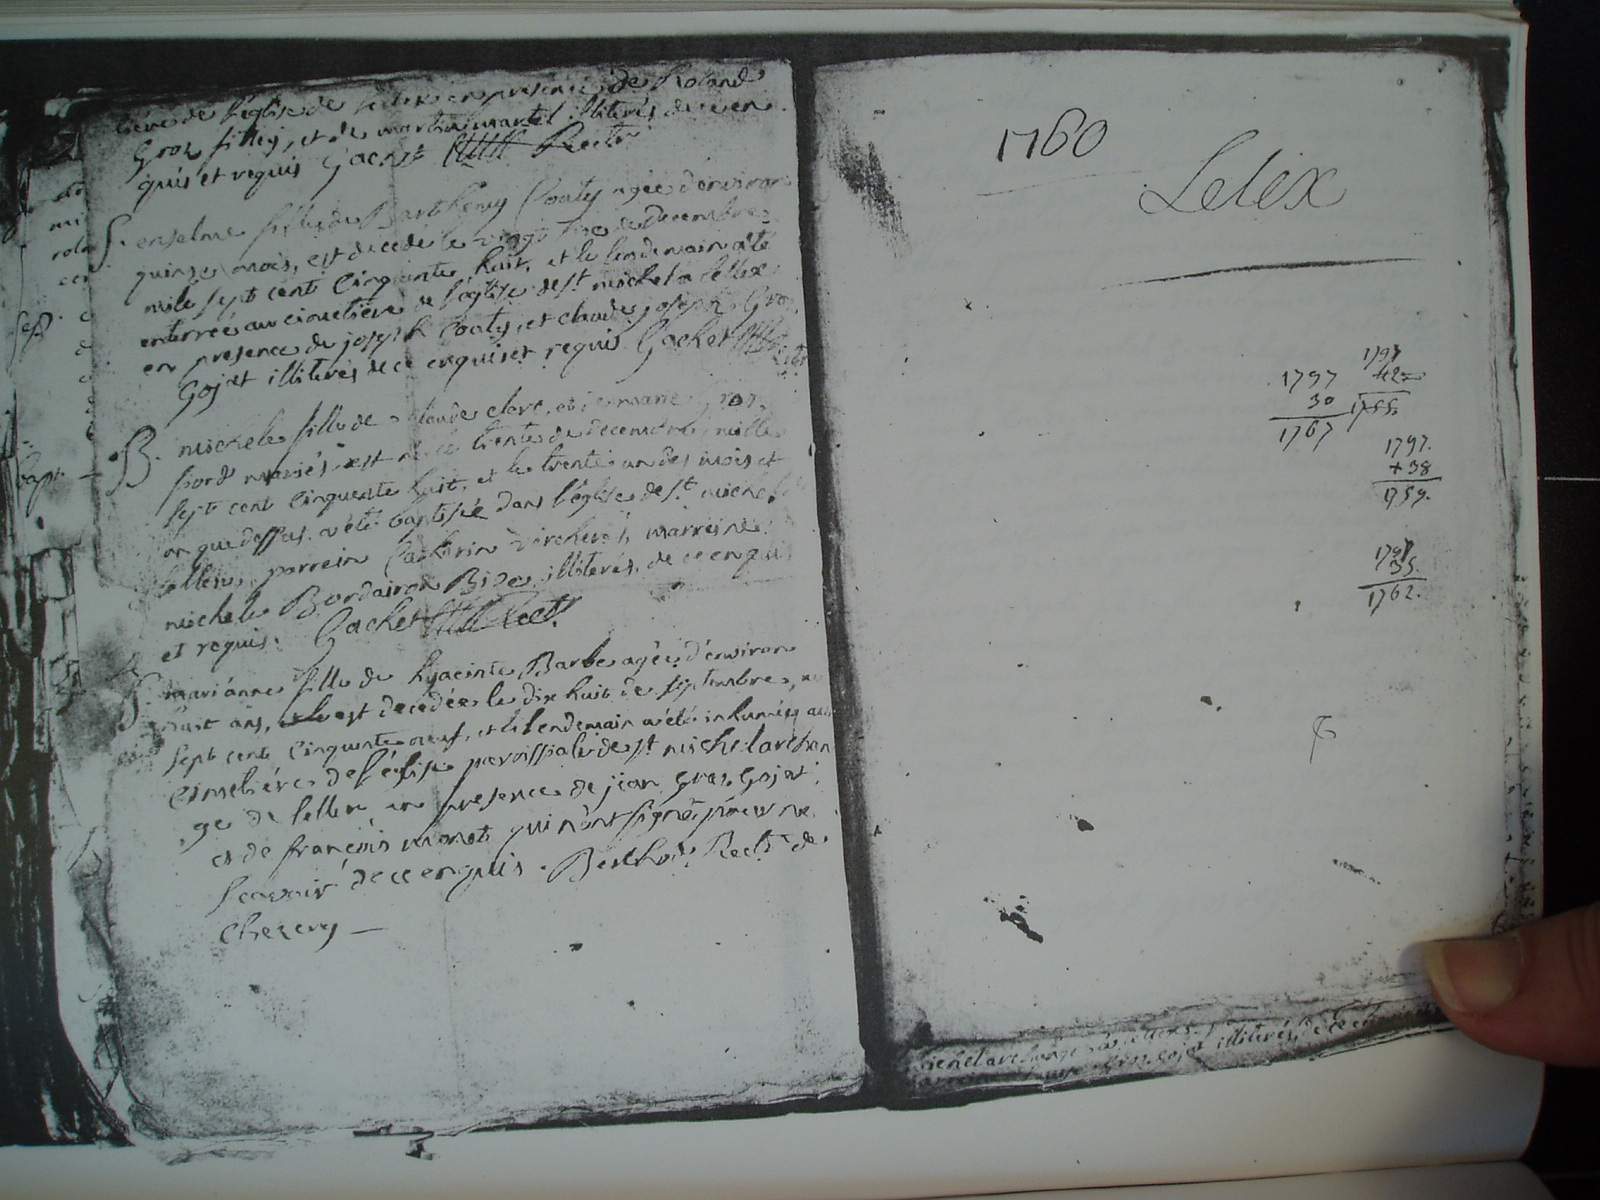 tiére de l'église de lellex en presence de Roland
Groz filley, et de martin martel illiterés de ce en
quis et requis Gachet Rectr
S. enselme fille de Barthelemy Coaty agée d'environ
quinze mois, est decedée le vingt de decembre
mile sept cent cinquante huit, et le lendemain a été
enterrée au cimetiére de l'église de st michel a lellex
en presence de joseph Coaty, et claude joseph Gro
Gojat illiterés de ce enquis et requis Gachet Rectr
B. michele fille de claude clerc, et jemane Gros
mariés est née le trente de decembre mille
sept cent cinquante huit, et le trente un des mois et
an que dessus a été baptisée dans l'église de st michel
lellex, parrein marreine
michele Bordairon Bize, illiterés, de ce enqui
et requis. Gachet Rect
S. marianne fille de hyacinte Barbe agée d'environ
huit ans, est decedée le dix huit de septembre,
sept cent cinquante neuf, et le lendemain a été inhumée au
cimetiére de l'église paroissiale de st michel archan
ge de lellex, en presence de jean Gros Gojat
et de françois monet qui n'ont signé pour ne
scavoir de ce enquis. Berthod Rectr de
Chezery —
sep
bapt
1760
Lelex
1797
30
1767
1797
42
1755
1797.
+ 38
1759.
1797
35.
1762.
michel archange
Gros gojat illiterés, de ce enquis